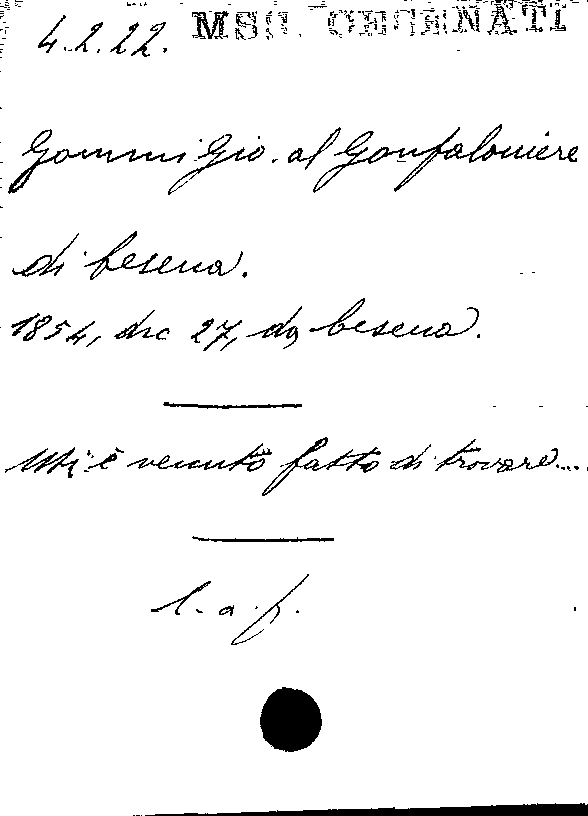 4.2.22. MSS. CESENATI
Gommi Gio. al Gonfaloniere
di Cesena.
1854, dic 27, da Cesena.
Mi è venuto fatto di trovare....
l. a. f.